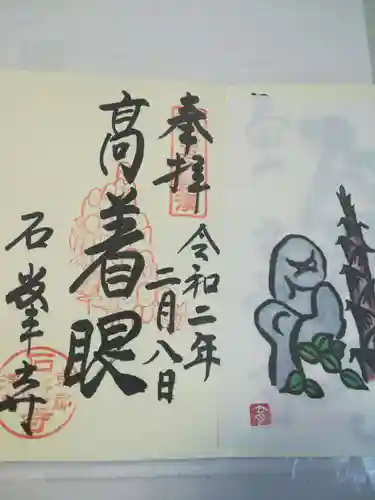 奉拝
令和二年
二月八日
高着眼
石峯寺